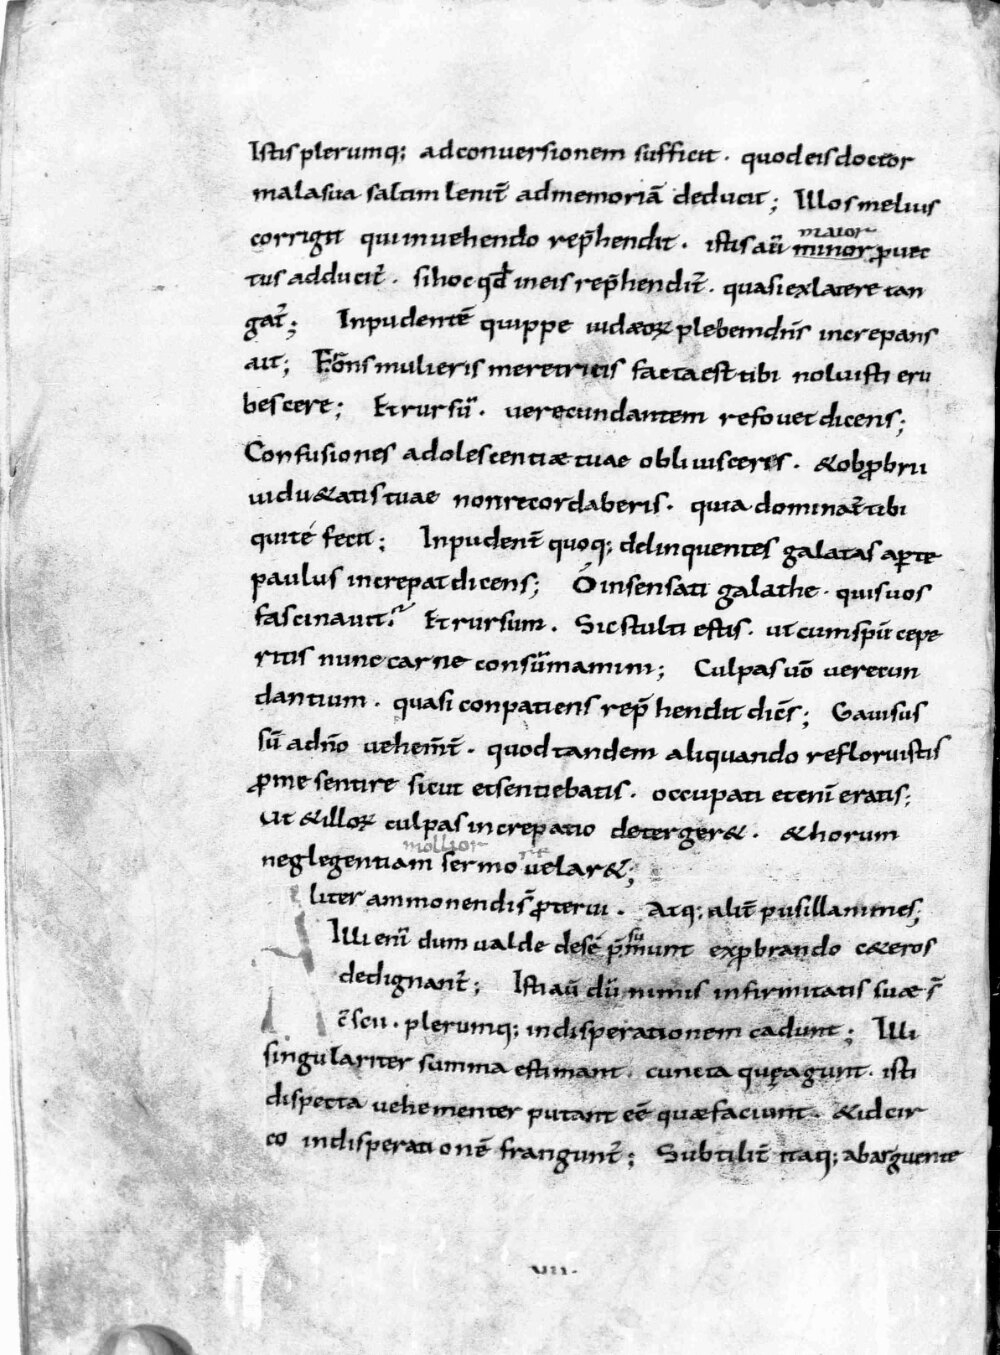 Istis plerumq; ad conuersionem sufficit. quod eis doctor
mala sua saltim lenit̄ ad memoriā deducit; Illos melius
corrigit qui inuehendo rep̄hendit. istis aūt minor ꝓuec
maior
tus adducit̄. si hoc qd̄ in eis rep̄hendit̄. quasi ex latere tan
gat̄; Inpudentē quippe iudæoꝝ plebem dn̄s increpans
ait; Frōns mulieris meretricis facta est tibi noluisti eru
bescere; Et rursū. uerecundantem refouet dicens;
Confusiones adolescentiæ tuae obliuisceris. & obꝓbrii
uidu&atis tuae non recordaberis. quia dominat̄ tibi
qui té fecit; Inpudent̄ quoq; delinquentes galatas aꝑte
paulus increpat dicens; Ó insensati galathe. quis uos
fascinauit? Et rursum. Sic stulti estis. ut cum spū cepe
ritis nunc carne consūmamini; Culpas uō uerecun
dantium. quasi conpatiens rep̄hendit diēs; Gauisus
sū adn̄o uehem̄t. quod tandem aliquando refloruistis
ꝓ me sentire sicut et sentiebatis. occupati etenī eratis;
Ut & illoꝝ culpas increpatio deterger&. & horum
mollior
neglegentiam sermo uelar&;
liter ammonendi s̄ ꝓterui. Atq; alit̄ pusillanimes;
Illi enī dum ualde de sē p̄sumunt exꝓbrando c&eros
dedignant̄; Isti aū dū nimis infirmitatis suæ s̄
c̄scii. plerumq; in disperationem cadunt; Illi
singulariter summa estimant. cuncta quę agunt. isti
dispecta uehementer putant eē quæ faciunt. & idcir
co in disperationē frangunt̄; Subtilit̄ itaq; ab arguente
VII.